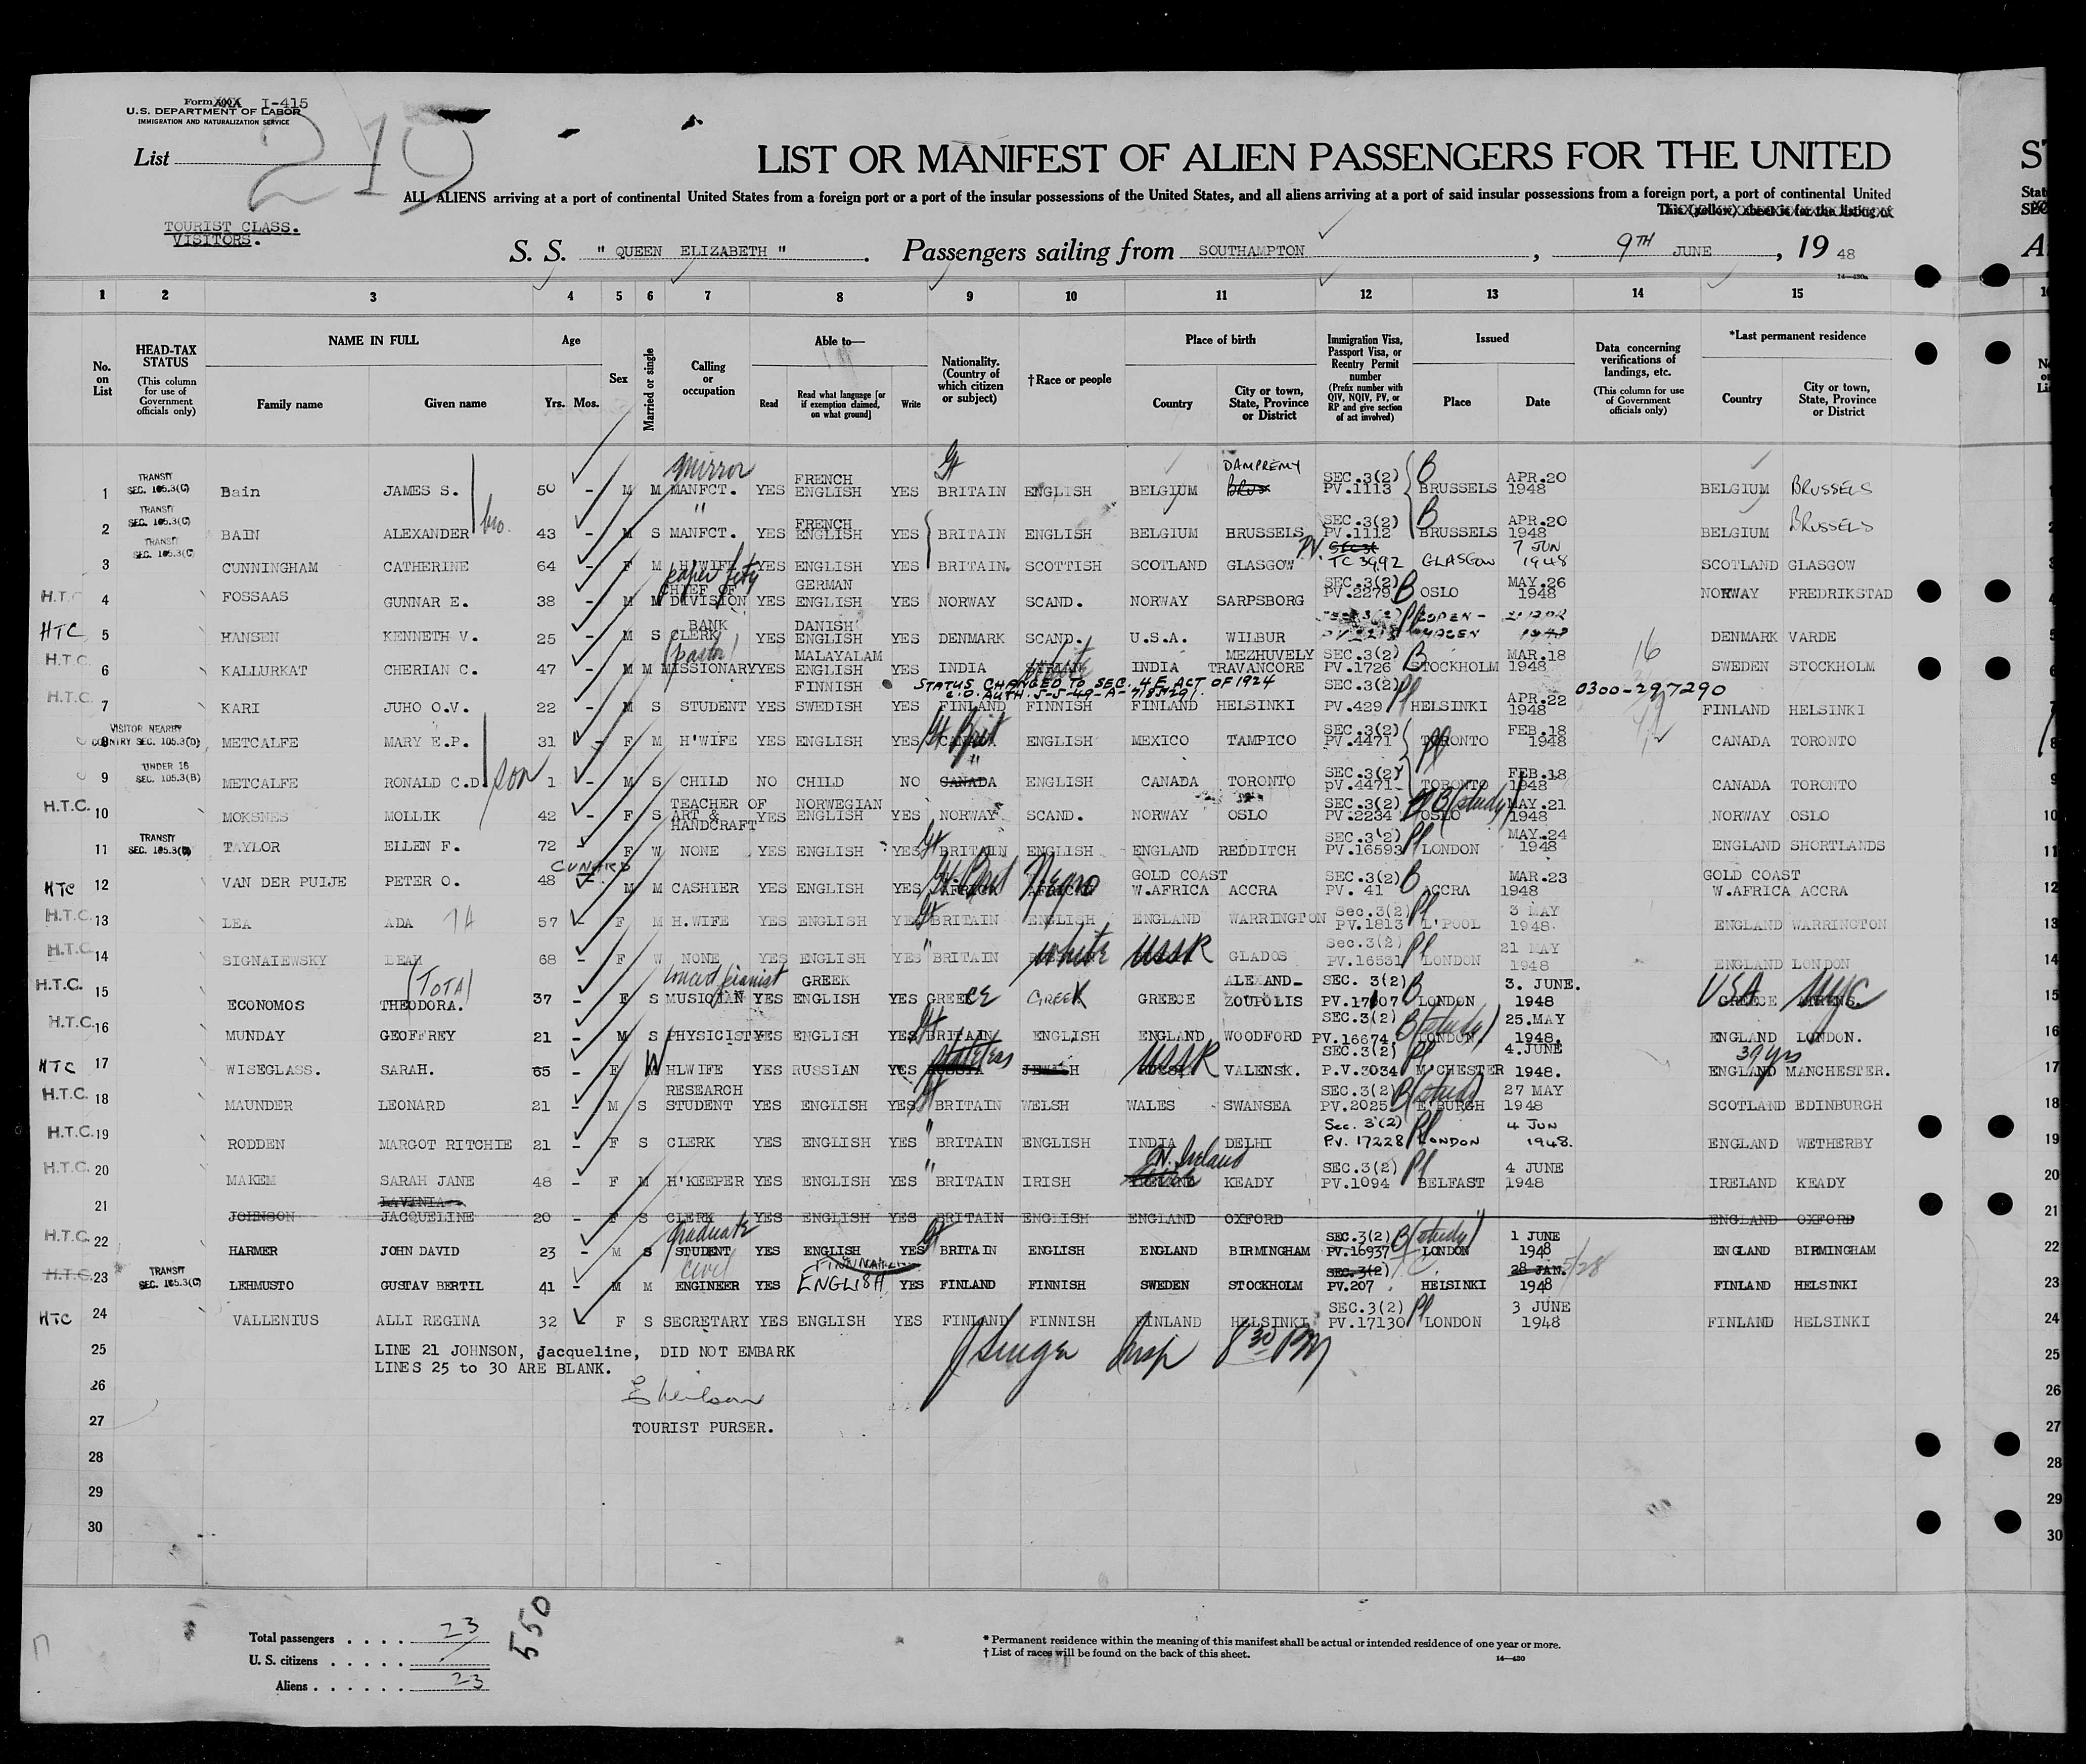 Form I-415
U.S. DEPARTMENT OF LABOR
IMMIGRATION AND NATURALIZATION SERVICE
List 210
LIST OR MANIFEST OF ALIEN PASSENGERS FOR THE UNITED
ALL ALIENS arriving at a port of continental United States from a foreign port or a port of the insular possessions of the United States, and all aliens arriving at a port of said insular possessions from a foreign port, a port of continental United
This (yellow) sheet is for the listing of
TOURIST CLASS.
VISITORS.
S. S. " QUEEN ELIZABETH ". Passengers sailing from SOUTHAMPTON, 9TH JUNE, 19 48
1 2 3 4 5 6 7 8 9 10 11 12 13 14 15
No. on List
HEAD-TAX STATUS (This column for use of Government officials only)
NAME IN FULL Family name Given name
Age Yrs. Mos.
Sex
Married or single
Calling or occupation
Able to— Read Read what language [or if exemption claimed, on what ground] Write
Nationality. (Country of which citizen or subject)
†Race or people
Place of birth Country City or town, State, Province or District
Immigration Visa, Passport Visa, or Reentry Permit number (Prefix number with QIV, NQIV, PV, or RP and give section of act involved)
Issued Place Date
Data concerning verifications of landings, etc. (This column for use of Government officials only)
*Last permanent residence Country City or town, State, Province or District
1 TRANSIT SEC. 105.3(C) Bain JAMES S. 50 - M M mirror MANFCT. YES FRENCH ENGLISH YES Gt BRITAIN ENGLISH BELGIUM DAMPREMY SEC.3(2) PV.1113 B BRUSSELS APR.20 1948 BELGIUM BRUSSELS
2 TRANSIT SEC. 105.3(C) BAIN ALEXANDER bro. 43 - M S " MANFCT. YES FRENCH ENGLISH YES BRITAIN ENGLISH BELGIUM BRUSSELS SEC.3(2) PV.1112 B BRUSSELS APR.20 1948 BELGIUM BRUSSELS
3 TRANSIT SEC. 105.3(C) CUNNINGHAM CATHERINE 64 - F M H'WIFE YES ENGLISH YES BRITAIN. SCOTTISH SCOTLAND GLASGOW P.V. TC 3992 GLASGOW 7 JUN 1948 SCOTLAND GLASGOW
H.T.C. 4 FOSSAAS GUNNAR E. 38 - M M paper fcty CHIEF OF DIVISION YES GERMAN ENGLISH YES NORWAY SCAND. NORWAY SARPSBORG SEC.3(2) PV.2279 B OSLO MAY.26 1948 NORWAY FREDRIKSTAD
HTC 5 HANSEN KENNETH V. 25 - M S BANK CLERK YES DANISH ENGLISH YES DENMARK SCAND. U.S.A. WILBUR SEC 3(2) Pl COPEN-HAGEN 1948 DENMARK VARDE
H.T.C. 6 KALLURKAT CHERIAN C. 47 - M M (pastor) MISSIONARY YES MALAYALAM ENGLISH YES INDIA white INDIA MEZHUVELY TRAVANCORE SEC.3(2) PV.1726 B STOCKHOLM MAR.18 1948 16 SWEDEN STOCKHOLM
STATUS CHANGED TO SEC. 4 E ACT OF 1924
H.T.C. 7 KARI JUHO O.V. 22 - M S STUDENT YES FINNISH SWEDISH YES FINLAND FINNISH FINLAND HELSINKI SEC.3(2) PV.429 Pl HELSINKI APR.22 1948 0300-297290 FINLAND HELSINKI
8 VISITOR NEARBY COUNTRY SEC. 105.3(D) METCALFE MARY E.P. 31 - F M H'WIFE YES ENGLISH YES Gt Brit CANADA ENGLISH MEXICO TAMPICO SEC.3(2) PV.4471 Pl TORONTO FEB.18 1948 CANADA TORONTO
9 UNDER 16 SEC. 105.3(B) METCALFE RONALD C.D. son 1 - M S CHILD NO CHILD NO " CANADA ENGLISH CANADA TORONTO SEC.3(2) pV.4471 TORONTO FEB.18 1948 CANADA TORONTO
H.T.C. 10 MOKSNES MOLLIK 42 - F S TEACHER OF ART & HANDCRAFT YES NORWEGIAN ENGLISH YES NORWAY SCAND. NORWAY OSLO SEC.3(2) PV.2234 B(study) OSLO MAY.21 1948 NORWAY OSLO
11 TRANSIT SEC. 105.3(C) TAYLOR ELLEN F. 72 - F W NONE YES ENGLISH YES Gt BRITAIN ENGLISH ENGLAND REDDITCH SEC.3(2) PV.16593 Pl LONDON MAY.24 1948 ENGLAND SHORTLANDS
CUNARD
HTC 12 VAN DER PUIJE PETER O. 48 - M M CASHIER YES ENGLISH YES Gt. Brit AFRICA Negro AFRICAN GOLD COAST W.AFRICA ACCRA SEC.3(2) PV. 41 B ACCRA MAR.23 1948 GOLD COAST W.AFRICA ACCRA
H.T.C. 13 LEA ADA 57 - F M H.WIFE YES ENGLISH YES Gt BRITAIN ENGLISH ENGLAND WARRINGTON Sec.3(2) PV.1813 Pl L'POOL 3 MAY 1948. ENGLAND WARRINGTON
H.T.C. 14 SIGNAIEWSKY LEAH 68 - F W NONE YES ENGLISH YES " BRITAIN white USSR GLADOS Sec.3(2) PV.16531 Pl LONDON 21 MAY 1948 ENGLAND LONDON
H.T.C. 15 ECONOMOS (TOTA) THEODORA. 37 - F S concert pianist MUSICIAN YES GREEK ENGLISH YES GREECE GREEK GREECE ALEXAND-ZOUPOLIS SEC. 3(2) PV.17107 B LONDON 3. JUNE. 1948 USA NYC GREECE ATHENS.
H.T.C. 16 MUNDAY GEOFFREY 21 - M S PHYSICIST YES ENGLISH YES Gt BRITAIN ENGLISH ENGLAND WOODFORD SEC.3(2) PV.16674 B(study) LONDON. 25.MAY 1948. ENGLAND LONDON.
HTC 17 WISEGLASS. SARAH. 65 - F W HLWIFE YES RUSSIAN YES stateless RUSSIA JEWISH USSR VALENSK. SEC.3(2) P.V.3034 Pl M'CHESTER 4.JUNE 1948. 39 yrs ENGLAND MANCHESTER.
H.T.C. 18 MAUNDER LEONARD 21 - M S RESEARCH STUDENT YES ENGLISH YES Gt BRITAIN WELSH WALES SWANSEA SEC.3(2) PV.2025 B(study) E'BURGH 27 MAY 1948 SCOTLAND EDINBURGH
H.T.C. 19 RODDEN MARGOT RITCHIE 21 - F S CLERK YES ENGLISH YES " BRITAIN ENGLISH INDIA DELHI Sec. 3(2) P.V. 17228 Pl LONDON 4 JUN 1948. ENGLAND WETHERBY
H.T.C. 20 MAKEM SARAH JANE 48 - F M H'KEEPER YES ENGLISH YES " BRITAIN IRISH N. Ireland KEADY SEC.3(2) PV.1094 Pl BELFAST 4 JUNE 1948 IRELAND KEADY
21 JOHNSON LAVINIA JACQUELINE 20 - F S CLERK YES ENGLISH YES BRITAIN ENGLISH ENGLAND OXFORD ENGLAND OXFORD
H.T.C. 22 HARMER JOHN DAVID 23 - M S graduate STUDENT YES ENGLISH YES Gt BRITAIN ENGLISH ENGLAND BIRMINGHAM SEC.3(2) PV.16937 B(study) LONDON 1 JUNE 1948 ENGLAND BIRMINGHAM
H.T.C. 23 TRANSIT SEC. 105.3(C) LEHMUSTO GUSTAV BERTIL 41 - M M civil ENGINEER YES ENGLISH YES FINLAND FINNISH SWEDEN STOCKHOLM SEC.3(2) PV.207 HELSINKI 28 JAN. 1948 5/28 FINLAND HELSINKI
HTC 24 VALLENIUS ALLI REGINA 32 - F S SECRETARY YES ENGLISH YES FINLAND FINNISH FINLAND HELSINKI SEC.3(2) PV.17130 Pl LONDON 3 JUNE 1948 FINLAND HELSINKI
25 LINE 21 JOHNSON, Jacqueline, DID NOT EMBARK
LINES 25 to 30 ARE BLANK.
Insp 8 30 PM
26
27 TOURIST PURSER.
28
29
30
Total passengers . . . . 23
U. S. citizens . . . . .
Aliens . . . . . . 23
550
* Permanent residence within the meaning of this manifest shall be actual or intended residence of one year or more.
† List of races will be found on the back of this sheet.
14—430